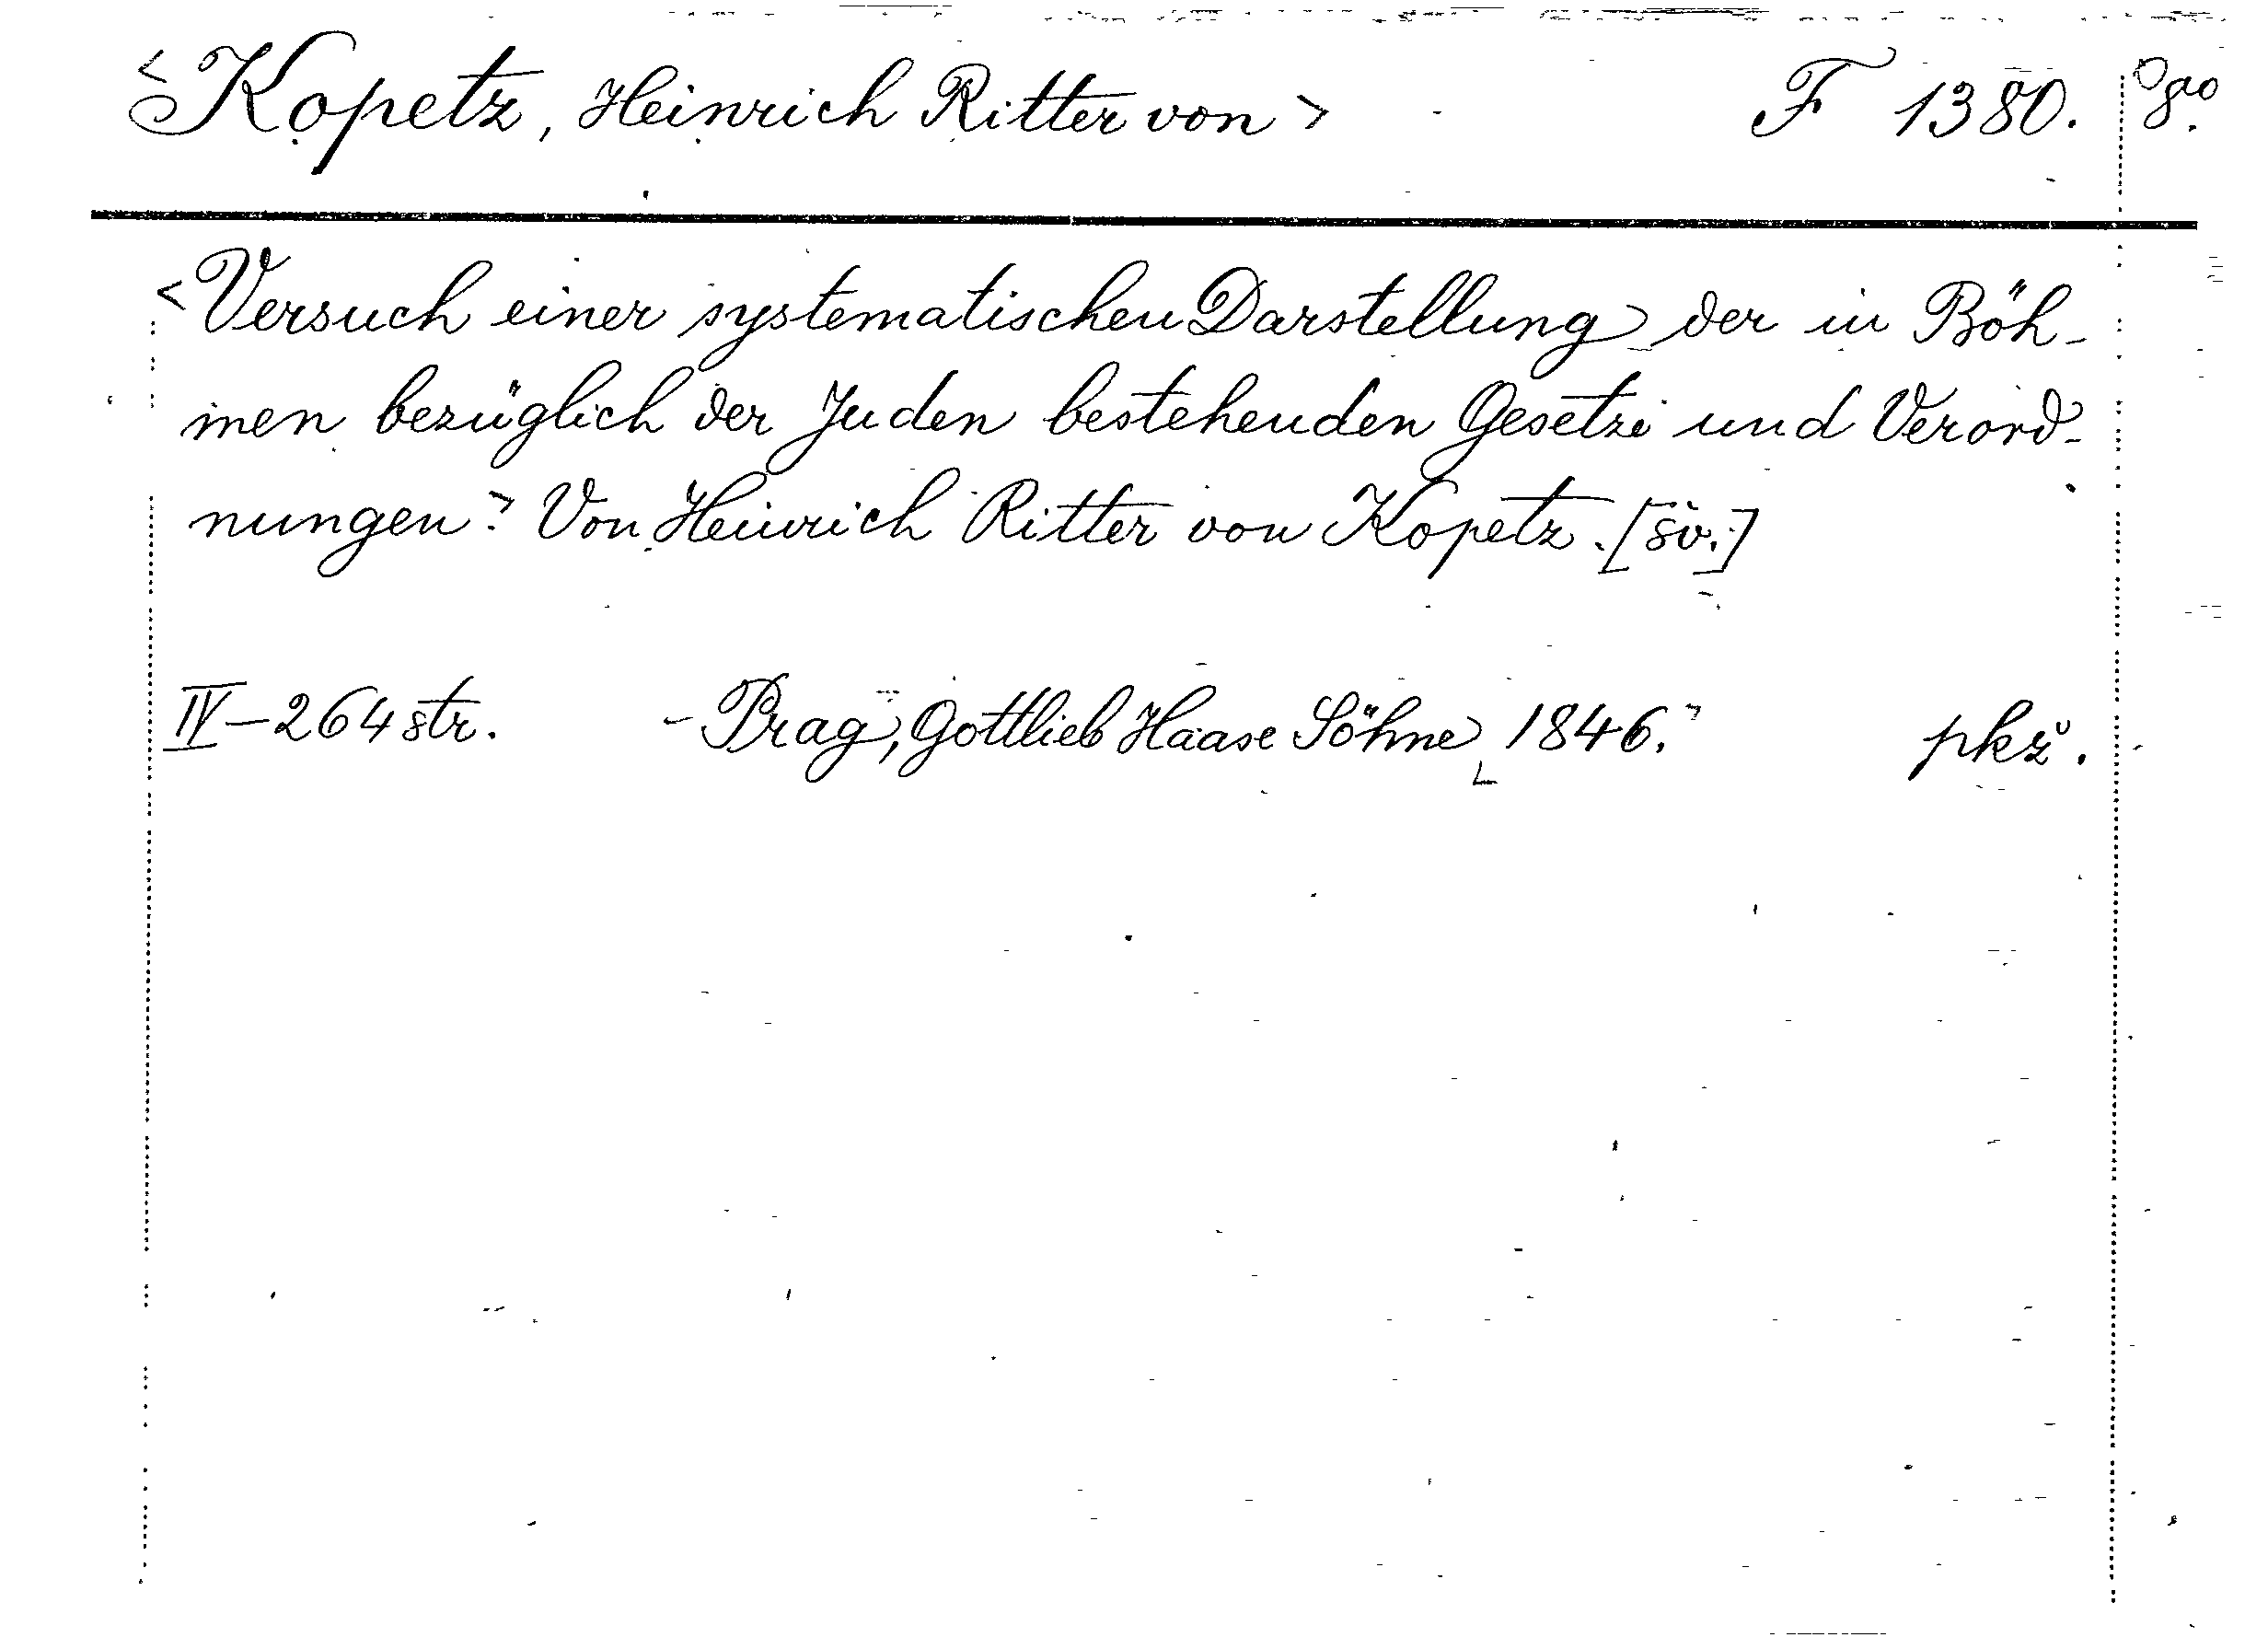 <Kopetz, Heinrich Ritter von> F 1380. 8°.
<Versuch einer systematischen Darstellung der in Böh-
men bezüglich der Juden bestehenden Gesetze und Verord-
nungen.> Von Heinrich Ritter von Kopetz. [šv.]
IV-264 str. - Prag, Gottlieb Haase Söhne, 1846. pkž.